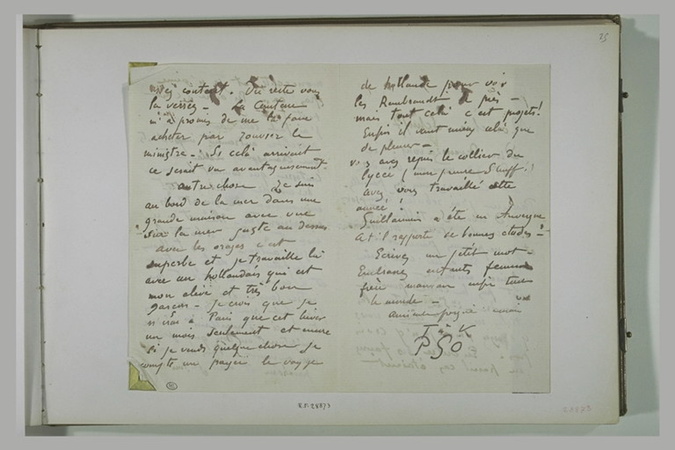 25
assez content. Du reste vous
la verrez - Le Centaure
m'a promis de me la faire
acheter par Rouvier le
ministre - Si celà arrivait
ce serait un avantageusement.
autre chose Je suis
au bord de la mer dans une
grande maison avec vue
sur la mer juste au dessus
avec les orages c'est
superbe et je travaille là
avec un hollandais qui est
mon élève et très bon
garçon - Je crois que je
n'irai à Paris que cet hiver
un mois seulement et encore
Si je vends quelque chose je
compte me payer le voyage
de hollande pour voir
les Rembrandt de près -
mais tout celà c'est projets!
Enfin il vaut mieux celà que
de pleurer -
vous avez repris le collier du
lycée (mon pauvre Schuff!)
avez vous travaillé cette
année?
Guillaumin a été en Auvergne
a t-il rapporté de bonnes études?
Ecrivez un petit mot -
Embrassez enfants femme
frère maman enfin tout
le monde -
P Go
R.F. 28873
28873